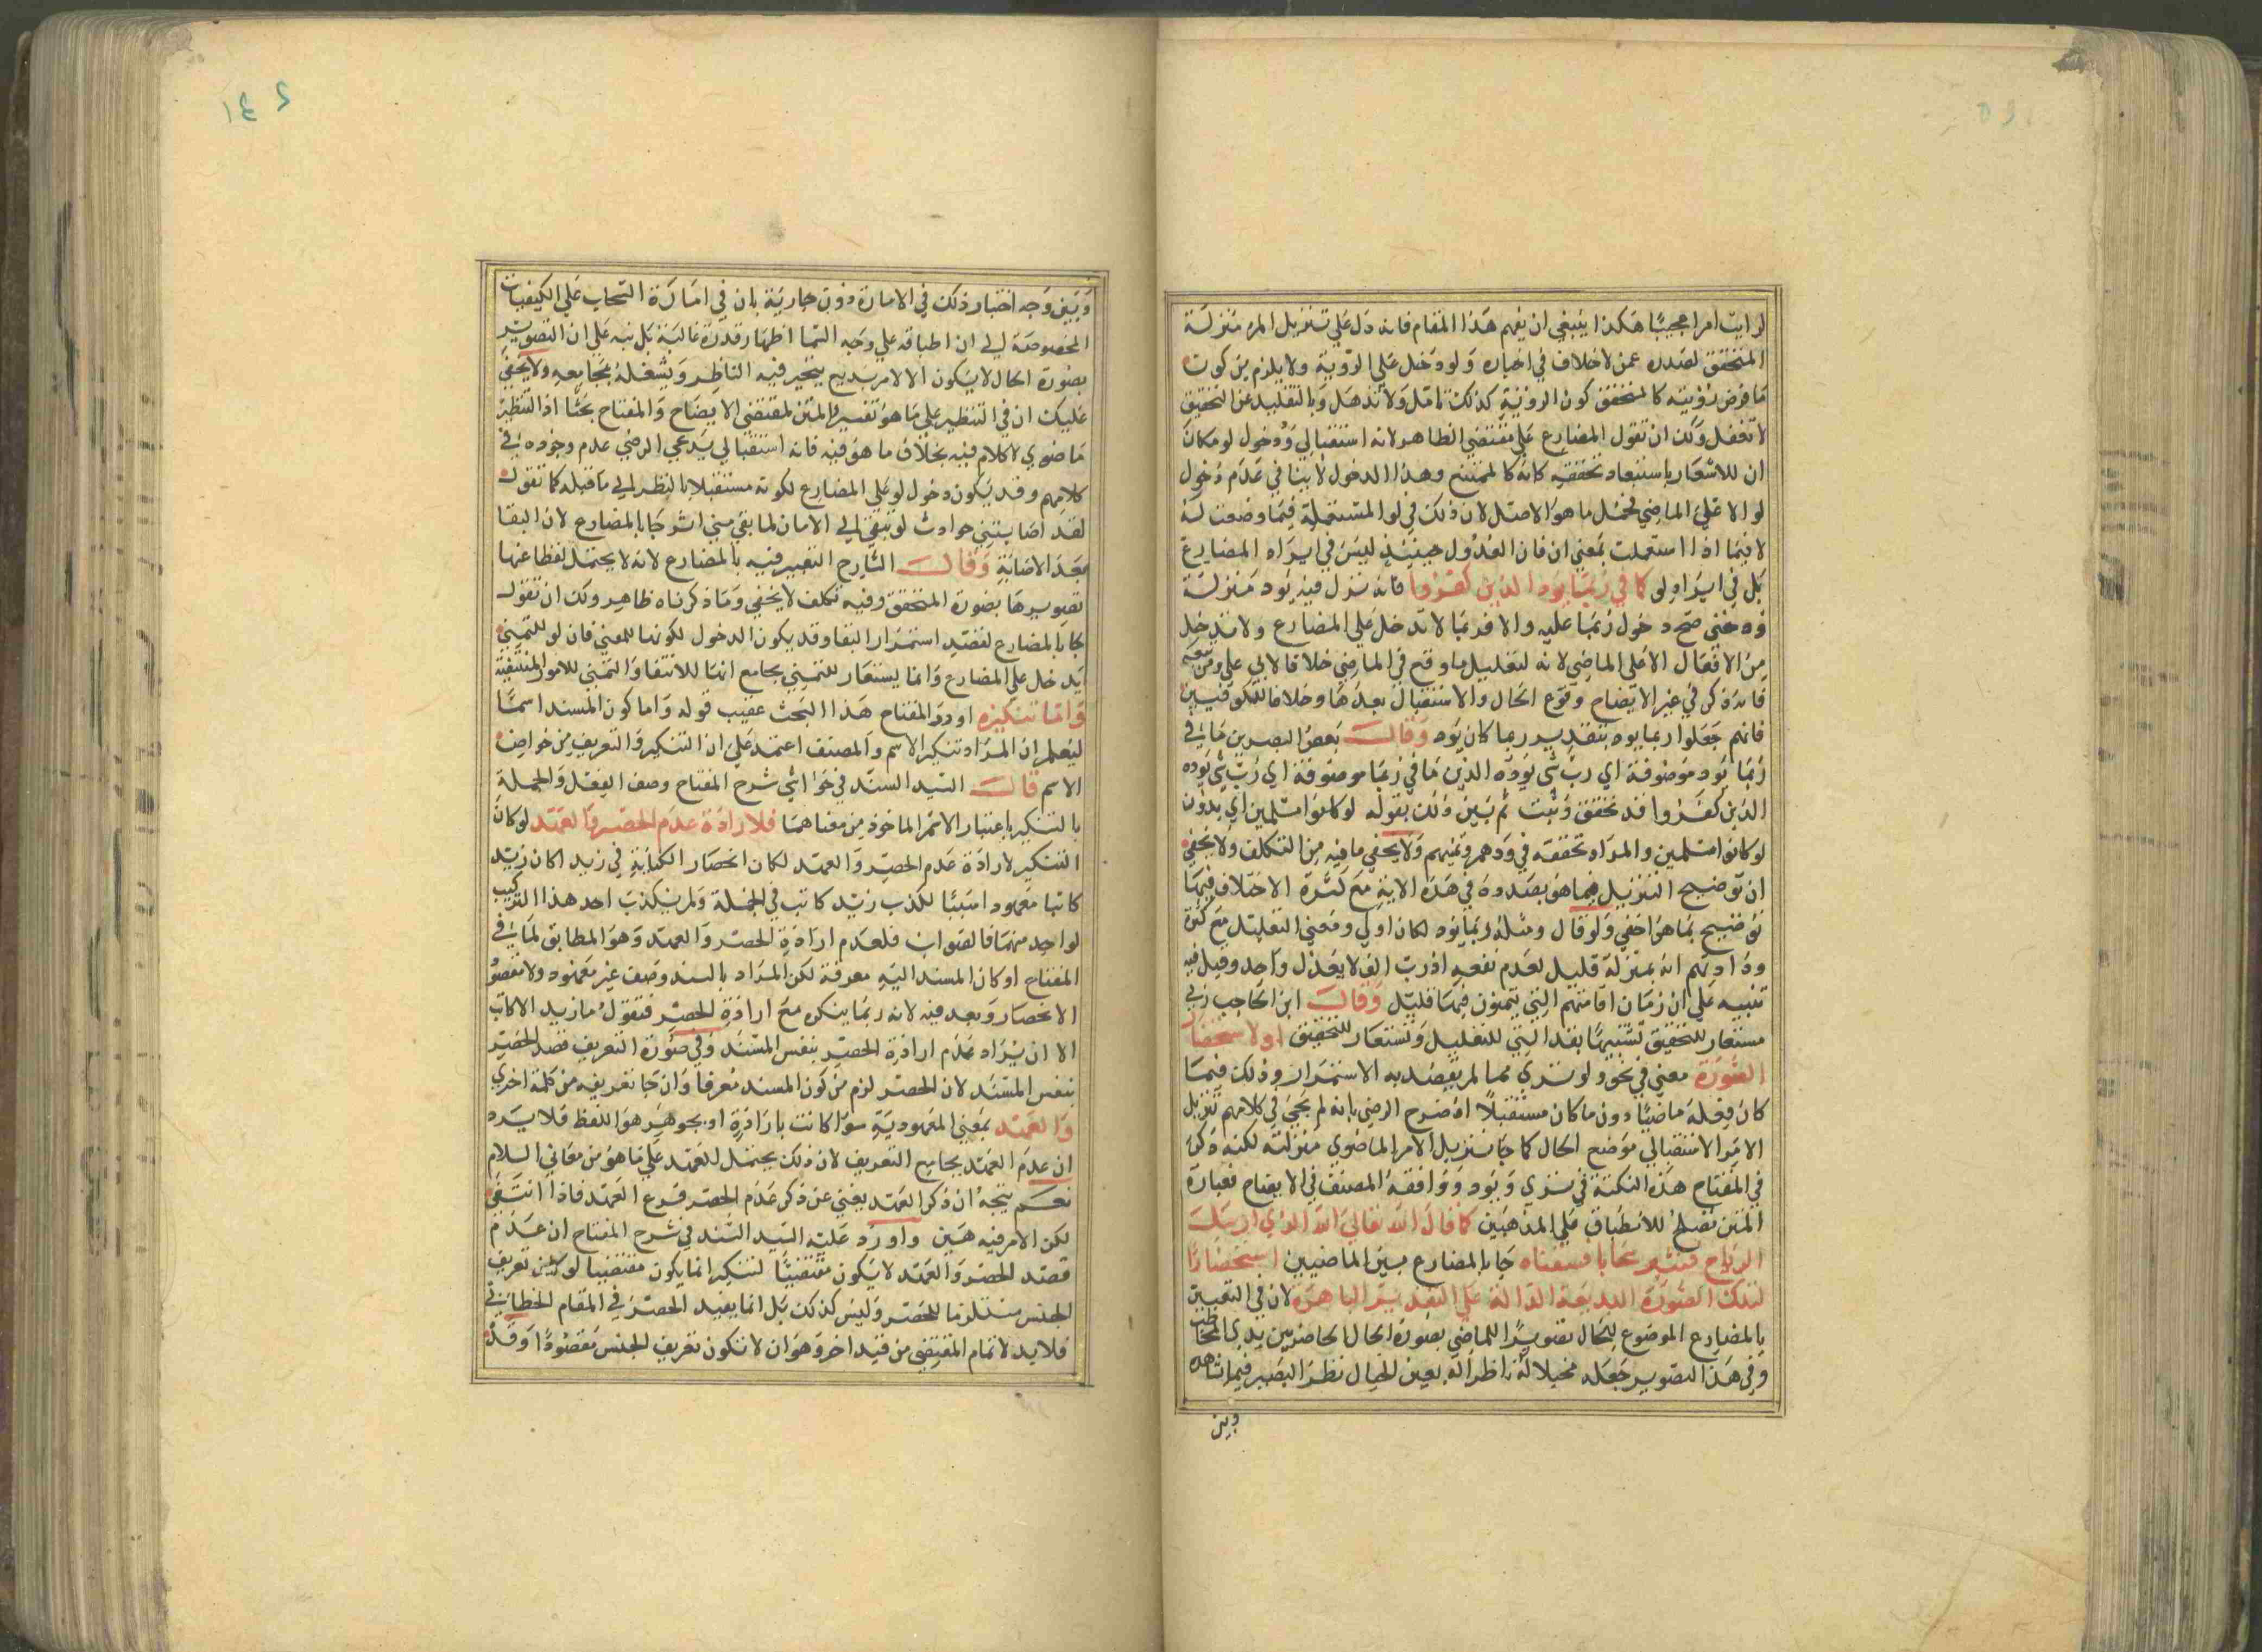 لرايت امرا عجيبا هكذا ينبغي ان يفهم هذا المقام فانه دل علي تنزيل المر منزلة
المتحقق لصدره عمن لا خلاف في اخباره ولو دخل علي الروية ولا يلزم من كون
ما فرض رؤيته كالمتحقق كون الرؤية كذلك تامل ولا تذهل وبالتقليد عن التحقيق
لا تغفل ولك ان تقول المضارع علي مقتضي الظاهر لانه استقبالي ودخول لو مكان
ان للاشعار باستبعاد تحققه كانه كالممتنع وهذا الدخول لا ينافي عدم دخول
لو الا علي الماضي لحمل ما هو الاصل لان ذلك في لو المستعملة فيما وضعت له
لا فيما اذا استعملت بمعني ان فان العدول حينئذ ليس في ايراد المضارع
بل في ايراد لو كما في ربما يود الذين كفروا فانه نزل فيه يود منزلة
ود حتي صح دخول ربما عليه والا فربما لا تدخل علي المضارع ولا تدخل
من الافعال الا علي الماضي لانه لتقليل ما وقع في الماضي خلافا لابي علي ومن تبعه
فانه ذكر في غير الايضاح وقوع الحال والاستقبال بعدها وخلافا للكوفيين
فانهم جعلوا ربما يود بتقدير ربما كان يود وقال بعض البصريين ما في
ربما يود موصوفة اي رب شي يوده الذين ما في ربما موصوفة اي رب شي يوده
الذين كفروا قد تحقق وثبت ثم بين ذلك بقوله لو كانوا مسلمين اي يودون
لو كانوا مسلمين والمراد تحققه في ودهم وتمنيهم ولا يخفي ما فيه من التكلف ولا يخفي
ان توضيح التنزيل فيما هو بصدده في هذه الاية مع كثرة الاختلاف فيها
توضيح بما هو اخفي ولو قال ومثله ربما يود لكان اولي ومعني التقليل مع كثرة
ودادتهم انه بمنزلة قليل لعدم نفعه اذ رب الف لا يعدل واحد وقيل فيه
تنبيه علي ان زمان افاقتهم التي يتمنون فيها قليل وقال ابن الحاجب ربي
مستعار للتحقيق تشبيها بقد التي للتقليل وتستعار للتحقيق او لاستحضار
الصورة معني في نحو ولو تري مما لم يقصد به الاستمرار وذلك فيما
كان فعله ماضيا دون ما كان مستقبلا اذ صرح الرضي بانه لم يجئ في كلامهم تنزيل
الامر الاستقبالي موضع الحال كما جا تنزيل الامر الماضوي منزلته لكنه ذكر
في المفتاح هذه النكتة في تري ويود ووافقه المصنف في الايضاح فعبارة
المتن تصلح للانطباق علي المذهبين كما قال الله تعالي الله الذي ارسل
الرياح فتثير سحابا فسقناه جا بالمضارع بين الماضيين استحضارا
لتلك الصورة البديعة الدالة علي القدرة الباهرة لان في التعبير
بالمضارع الموضوع للحال تصويرا للماضي بصورة الحال الحاضر بين يدي المخاطب
وفي هذا التصوير جعله مخيلا له ناظرا له بعين الخيال نظر البصير فيما شاهده
وبين
وبين وجه اختيار ذلك في الامارة دون جارية بان في امارة السحاب علي الكيفيات
المخصوصة الي ان اطباقه علي وجه السما اظهار قدرة غالبة بل نبه علي ان التصوير
بصورة الحال لا يكون الا لامر بديع يتحير فيه الناظر ويشغله بمجامعه ولا يخفي
عليك ان في التنظير علي ما هو تفسير المتن لمقتضي الايضاح والمفتاح بحثا اذ التنظير
ماضوي لا كلام فيه بخلاف ما هو فيه فانه استقبالي يدعي الرضي عدم وجوده في
كلامهم وقد يكون دخول لو علي المضارع لكونه مستقبلا بالنظر الي ما قبله كما تقول
لقد اصابتني حوادث لو تبقي الي الامان لما بقي مني اثر جا بالمضارع لان البقا
بعد الاصابة وقال الشارح التعبير فيه بالمضارع لانه لا يحتمل لفظا عنها
تصويرها بصورة المتحقق وفيه تكلف لا يخفي وما ذكرناه ظاهر ولك ان تقول
جا بالمضارع لقصد استمرار البقا وقد يكون الدخول لكونها للمعني فان لو للتمني
يدخل علي المضارع وانما يستعار للتمني بجامع انها للانتفا والتمني للامور المنتفية
واما تنكيره اورد المفتاح هذا البحث عقيب قوله واما كون المسند اسما
ليعلم ان المراد تنكير الاسم والمصنف اعتمد علي ان التنكير والتعريف من خواص
الاسم قال السيد السند في حواشي شرح المفتاح وصف الفعل والجملة
بالتنكير باعتبار الاسم الماخوذ من معناهما فلارادة عدم الحصر والعهد لو كان
التنكير لارادة عدم الحصر والعهد لكان انحصار الكتابة في زيد اكان زيد
كاتبا معهود امتبينا لكذب زيد كاتب في الجملة ولم يكذب احد هذا التركيب
لواحد منهما فالصواب فلعدم ارادة الحصر والعهد وهو المطابق لما في
المفتاح او كان المسند اليه معرفة لكن المراد بالمسند وصف غير معهود ولا مقصود
الانحصار وبعد فيه لانه ربما ينكر مع ارادة الحصر فتقول ما زيد الا كاتب
الا ان يراد عدم ارادة الحصر بنفس المسند وفي صورة التعريف قصد الحصر
بنفس المسند لان الحصر لزم من كون المسند معرفا وان جا تعريفه من كلمة اخري
والعهد بمعني المعهودية سوا كانت بارادة او بجوهر هو اللفظ فلا يرد
ان عدم العهد يجامع التعريف لان ذلك يحتمل العهد علي ما هو من معاني اللام
نعم يتجه ان ذكر العهد يغني عن ذكر عدم الحصر فرع العهد فاذا انتفي
لكن الامر فيه هين واورد عليه السيد السند في شرح المفتاح ان عدم
قصد الحصر والعهد لا يكون مقتضيا لتنكير انما يكون مقتضيا لو كان تعريف
الجنس مستلزما للحصر وليس كذلك بل انما يفيد الحصر في المقام الخطابي
فلا بد لاتمام المقتضي من قيد اخر وهو ان لا تكون تعريف الجنس مقصودا وقد